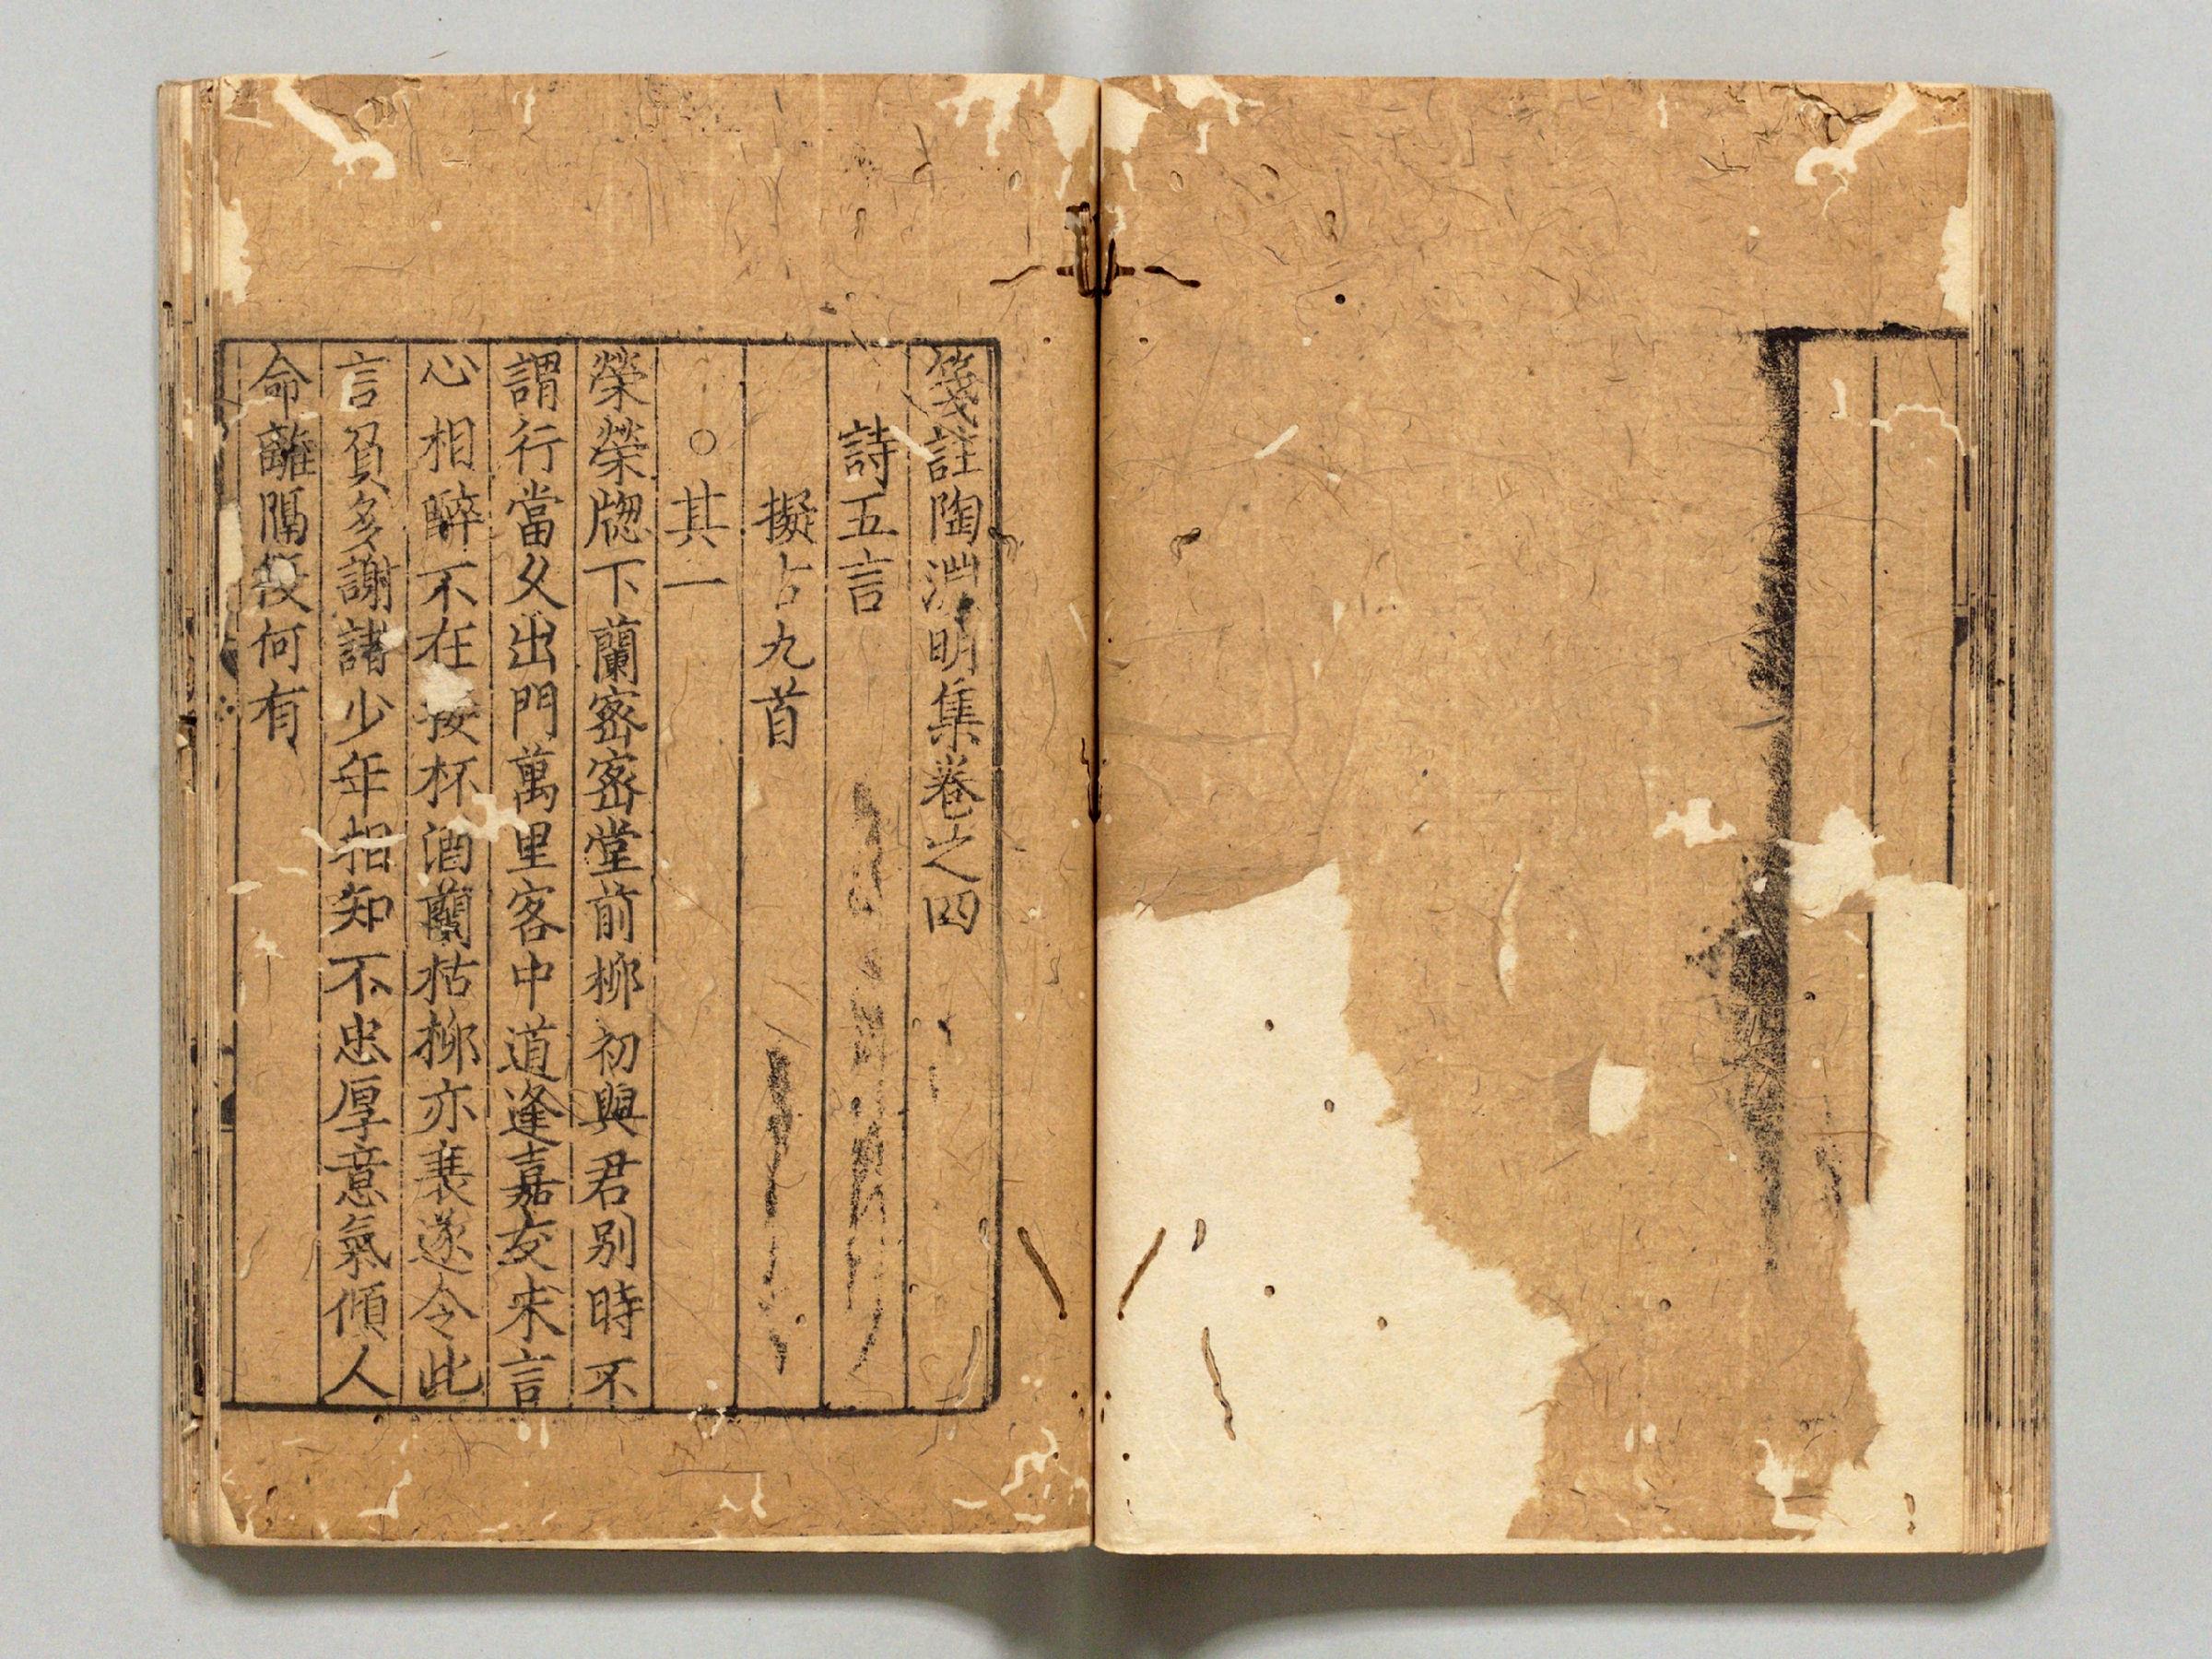 箋註陶渊明集卷之四
詩五言
擬古九首
○其一
榮榮牎下蘭宻宻堂前柳初與君別時不
謂行當久出門萬里客中道逢嘉友未言
心相醉不在接杯酒蘭枯柳亦衰遂令此
言負多謝諸少年相知不忠厚意氣傾人
命離隔復何有